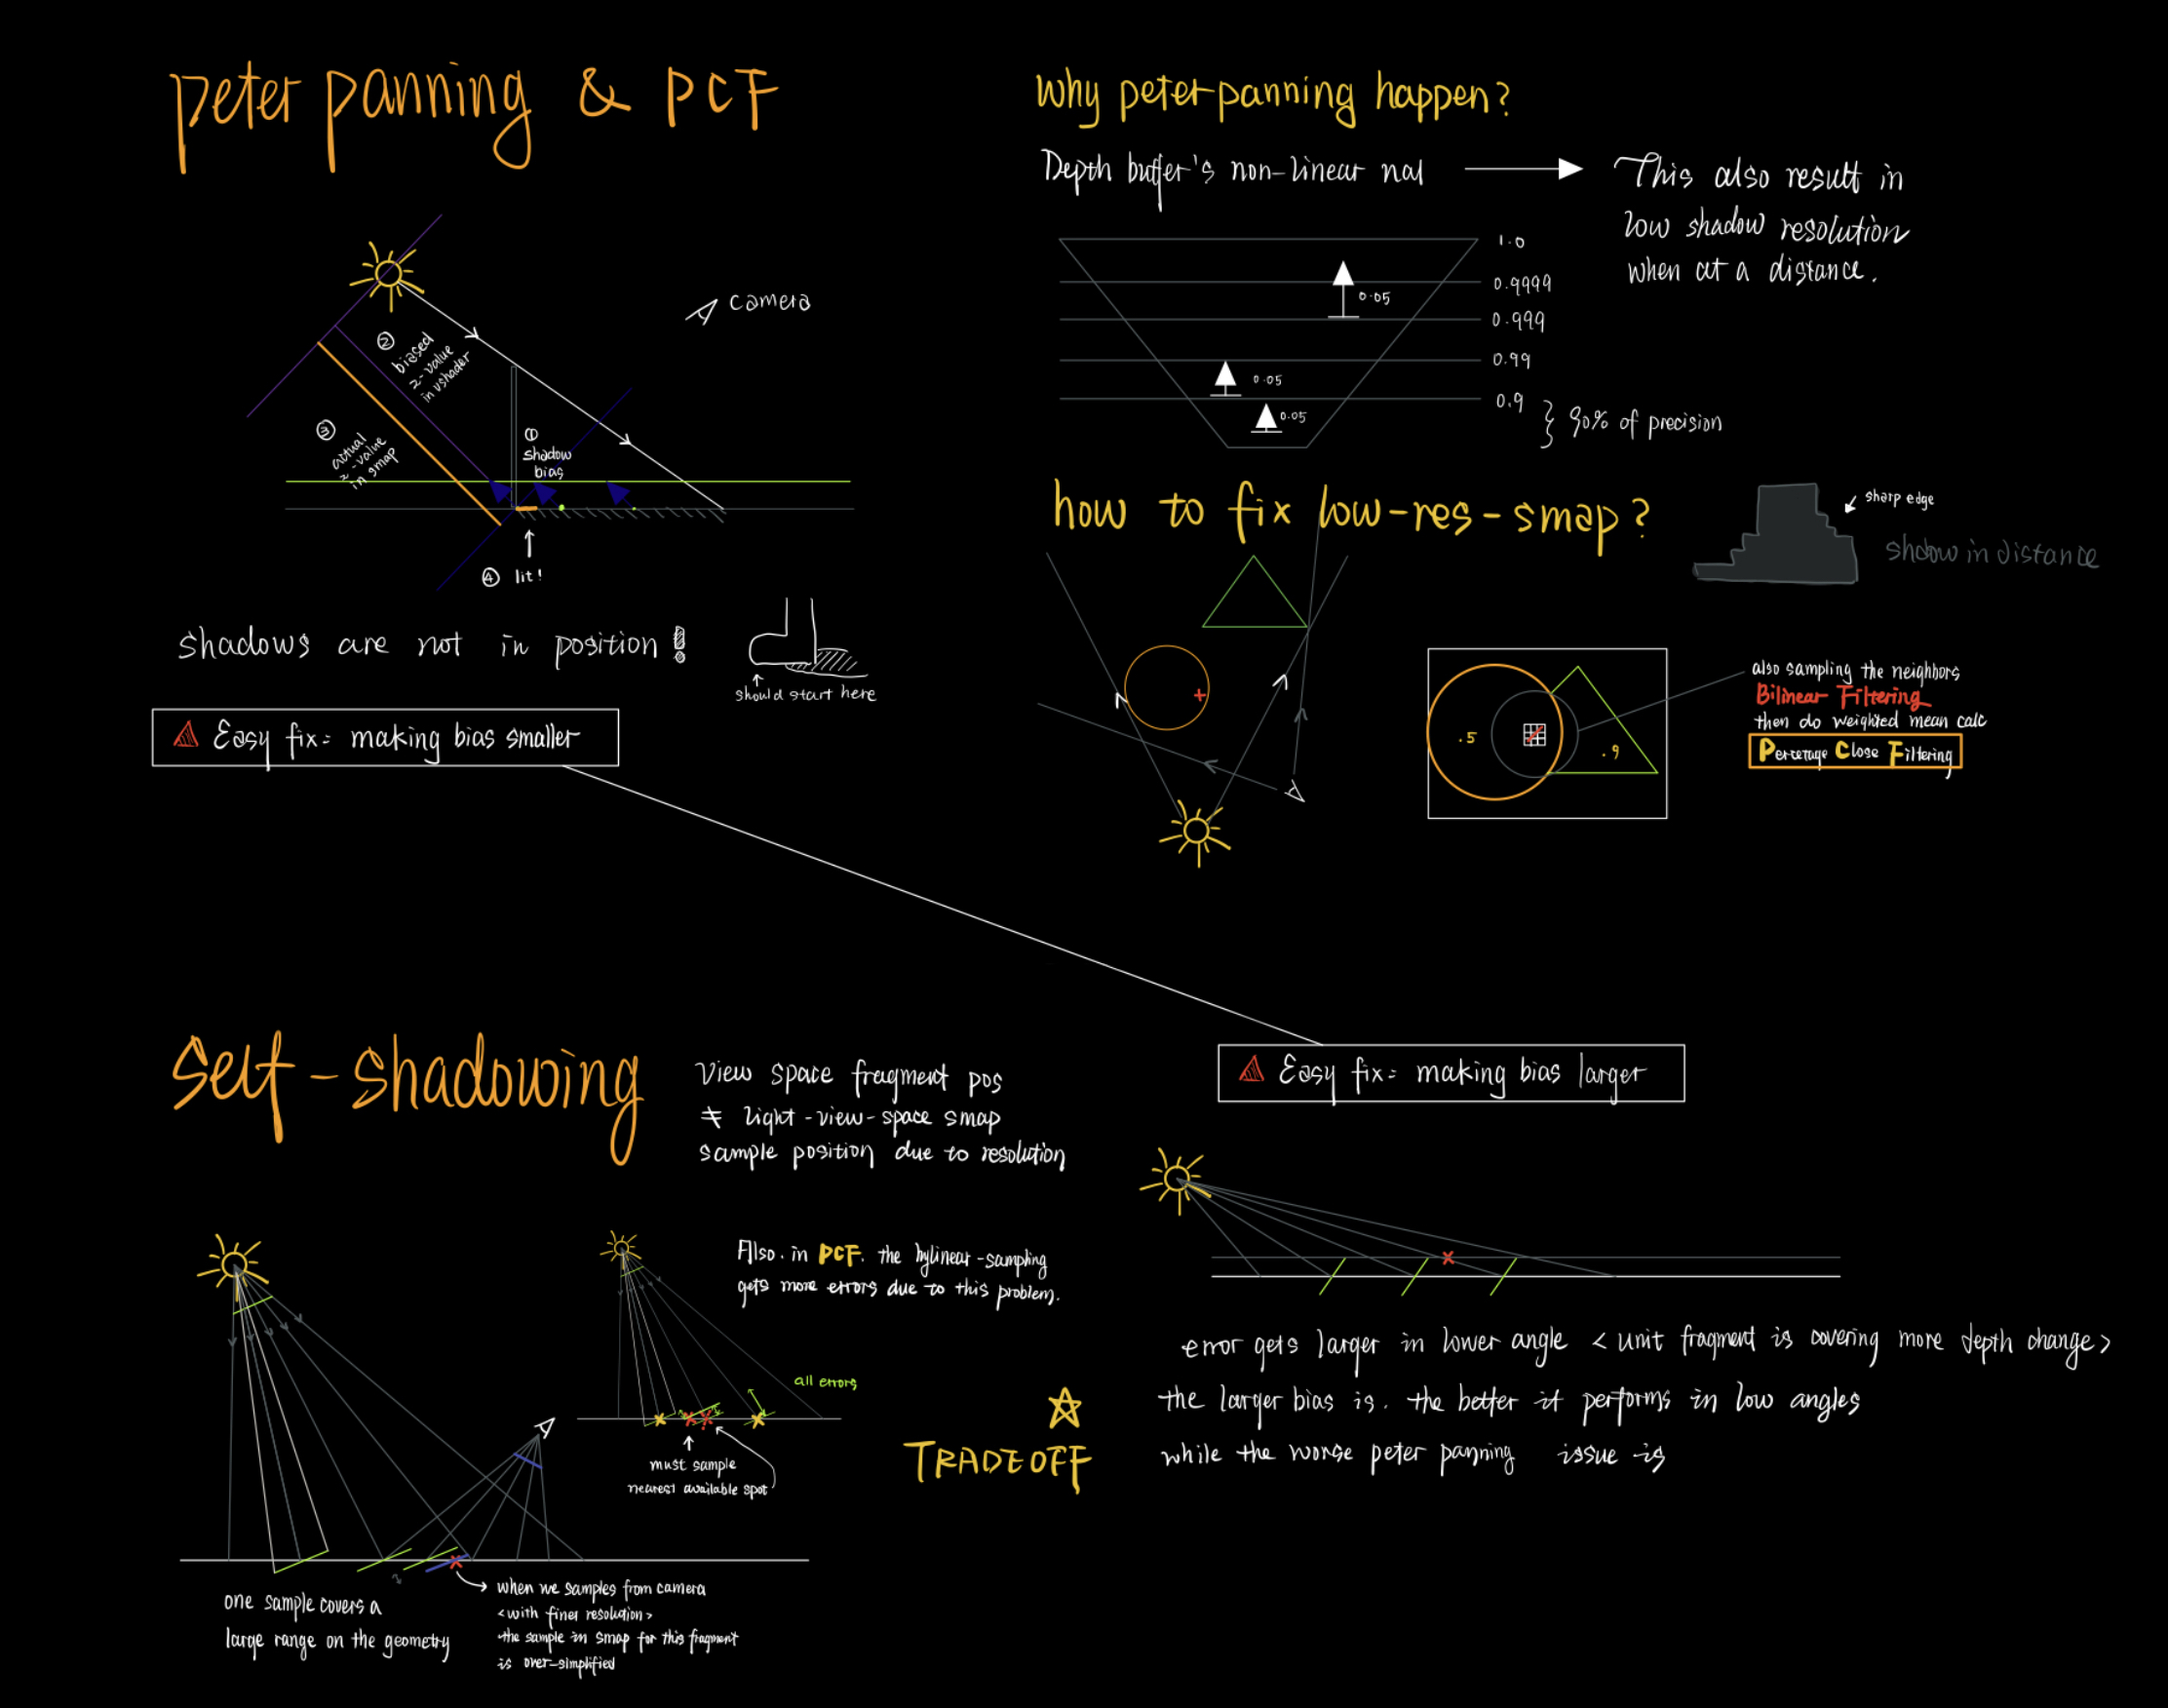 peter panning & PCF
camera
②
biased
z-value
in vshader
③
actual
z-value
in smap
①
shadow
bias
④ lit!
shadows are not in position!
should start here
Easy fix: making bias smaller
why peter panning happen?
Depth buffer's non-linear nal
This also result in
low shadow resolution
when at a distance.
1.0
0.9999
0.999
0.99
0.9
0.05
0.05
0.05
90% of precision
how to fix low-res-smap?
sharp edge
shdow in distance
.5
.9
also sampling the neighbors
Bilinear Filtering
then do weighted mean calc
Percentage Close Filtering
Self-shadowing
View space fragment pos
≠ light-view-space smap
sample position due to resolution
Easy fix: making bias larger
Also. in PCF. the bylinear-sampling
gets more errors due to this problem.
all errors
must sample
nearest available spot
one sample covers a
large range on the geometry
when we samples from camera
<with finer resolution>
the sample in smap for this fragment
is over-simplified
error gets larger in lower angle <unit fragment is covering more depth change>
TRADEOFF
the larger bias is. the better it performs in low angles
while the worse peter panning issue is